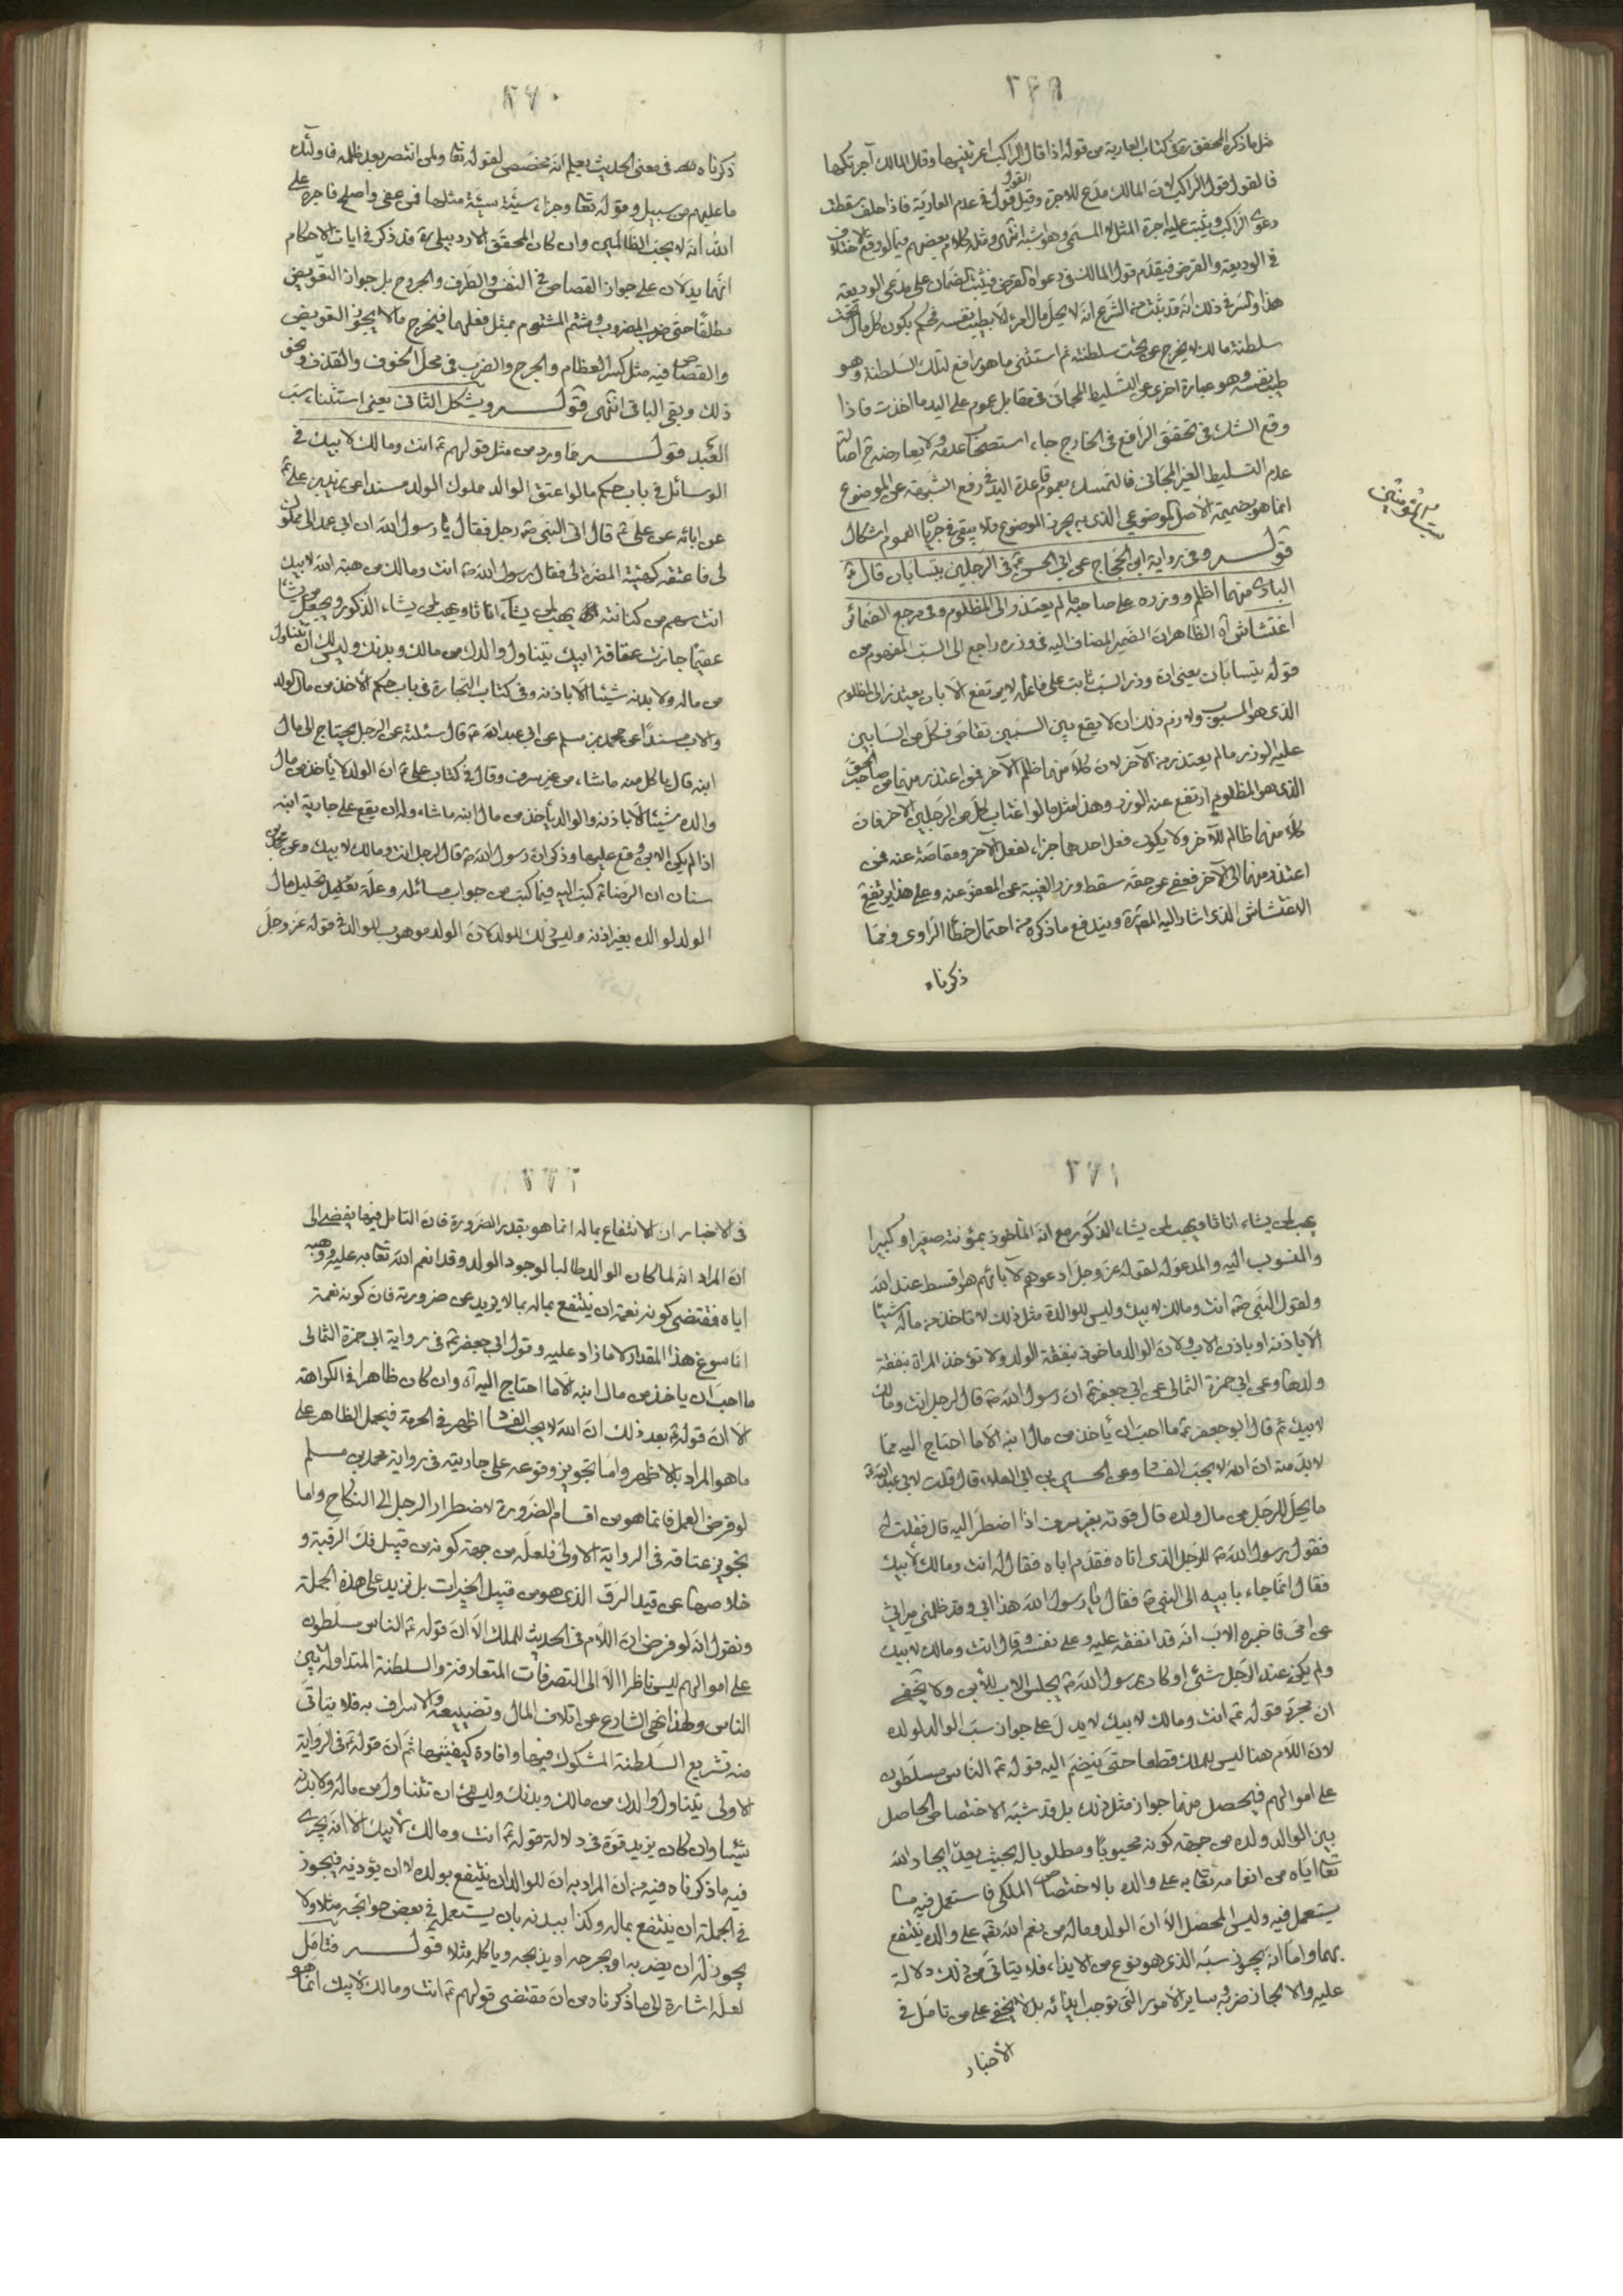 ٢٦٩
مثل ما ذكره المحقق ره فى كتاب العارية من قوله اذا قال الراكب اعرتنيها وقال المالك آجرتكها
فالقول قول الراكب لان المالك مدّع للاجرة وقيل القول قول المالك فى عدم العارية فاذا حلف سقطت
دعوى الراكب ويثبت عليه اجرة المثل لا المسمى وهو اشبه انتهى ومثله كلام بعضهم فيما لو وقع الاختلاف
فى الوديعة والقرض فيقدّم قول المالك فى دعواه القرض فيثبت الضمان على مدعى الوديعة
هذا والسر فى ذلك انه قد ثبت من الشرع انه لا يحل مال امرء الا بطيب نفسه فحكم بكون كل مال تحت
سلطنة مالكه لا يخرج عن تحت سلطنته ثم استثنى ما هو رافع لتلك السلطنة وهو
طيب نفسه وهو عبارة اخرى عن التسليط المجانى فى مقابل عموم على اليد ما اخذت فاذا
وقع الشك فى تحقق الرافع فى الخارج جاء استصحاب عدمه ولا يعارضه ح اصالة
عدم التسليط الغير المجانى فالتمسك بعموم قاعدة اليد فى رفع الشبهة عن الموضوع
انما هو بضميمة الاصل الموضوعى الذى به يحرز الموضوع فلا يبقى فى جريان العموم اشكال
قوله وفى رواية ابى الحجاج عن ابى الحسن ع فى الرجلين يتسابان قال ع
البادى منهما اظلم ووزره على صاحبه ما لم يعتذر الى المظلوم وفى مرجع الضمائر
اغتشاش اه الظاهر ان الضمير المضاف اليه فى وزره راجع الى السب المفهوم من
قوله يتسابان يعنى ان وزر السب ثابت على فاعله لا يرتفع الا بان يعتذر الى المظلوم
الذى هو المسبوب ولازم ذلك ان لا يقع بين السبين تقاص فكل من السابين
عليه الوزر ما لم يعتذر من الآخر لان كلا منهما ظلم الآخر فمن اعتذر منهما من صاحب الحق
الذى هو المظلوم ارتفع عنه الوزر وهذا مثل ما لو اغتاب كل من الرجلين الآخر فان
كلا منهما ظالم للآخر ولا يكون فعل احدهما جزاء لفعل الآخر ومقاصة عنه فمن
اعتذر منهما الى الآخر فعفى عن حقه سقط وزر الغيبة عن المعفو عنه وعلى هذا يرتفع
الاغتشاش الذى اشار اليه المصره ويندفع ما ذكره من احتمال خطاء الراوى ومما
ذكرناه
٢٧٠
ذكرناه فى معنى الحديث يعلم انه مخصص لقوله تعا ولمن انتصر بعد ظلمه فاولئك
ما عليهم من سبيل وقوله تعا وجزاء سيئة سيئة مثلها فمن عفى واصلح فاجره على
الله انه لا يحب الظالمين وان كان المحقق الاردبيلى ره قد ذكر فى ايات الاحكام
انهما يدلان على جواز القصاص فى النفس والطرف والجروح بل جواز التعويض
مطلقا حتى ضرب المضروب وشتم المشتوم بمثل فعلهما فيخرج ما لا يجوز التعويض
والقصاص فيه مثل كسر العظام والجرح والضرب فى محل الخوف والقذف ونحو
ذلك وبقى الباقى انتهى قوله ويشكل الثانى يعنى استثناء سب
العبد قوله فما ورد من مثل قولهم ع انت ومالك لابيك فى
الوسائل فى باب حكم ما لو اعتق الوالد مملوك الولد مسندا عن زيد بن على ع
عن ابائه عن على ع قال اتى النبى ص رجل فقال يا رسول الله ان ابى عمد الى مملوك
لى فاعتقه كهيئة المضرة لى فقال رسول الله ص انت ومالك من هبة الله لابيك
انت سهم من كنانته يهب لمن يشاء اناثا ويهب لمن يشاء الذكور ويجعل من يشاء
عقيما جازت عتاقة ابيك يتناول والدك من مالك وبدنك وليس لك ان تتناول
من ماله ولا بدنه شيئا الا باذنه وفى كتاب التجارة فى باب حكم الاخذ من مال الولد
والاب مسندا عن محمد بن مسلم عن ابى عبد الله ع قال سئلته عن الرجل يحتاج الى مال
ابنه قال ياكل منه ماشاء من غير سرف وقال فى كتاب على ع ان الولد لا يأخذ من مال
والده شيئا الا باذنه والوالد يأخذ من مال ابنه ماشاء وله ان يقع على جارية ابنه
اذا لم يكن الابن وقع عليها وذكر ان رسول الله ص قال لرجل انت ومالك لابيك وعن محمد بن
سنان ان الرضا ع كتب اليه فيما كتب من جواب مسائله وعلة تحليل مال
الولد لوالده بغير اذنه وليس ذلك للولد لان الولد موهوب للوالد فى قوله عز وجل
٢٧١
يهب لمن يشاء اناثا ويهب لمن يشاء الذكور مع انه المأخوذ بمؤنته صغيرا وكبيرا
والمنسوب اليه والمدعو له لقوله عز وجل ادعوهم لآبائهم هو اقسط عند الله
ولقول النبى ص انت ومالك لابيك وليس للوالدة مثل ذلك لا تاخذ من ماله شيئا
الا باذنه او باذن الاب ولان الوالد ماخوذ بنفقة الولد ولا تؤخذ المراة بنفقة
ولدها وعن ابى حمزة الثمالى عن ابى جعفر ع ان رسول الله ص قال لرجل انت ومالك
لابيك ثم قال ابو جعفر ع ما احب ان يأخذ من مال ابنه الا ما احتاج اليه مما
لا بد منه ان الله لا يحب الفساد وعن الحسين بن ابى العلاء قال قلت لابى عبد الله ع
ما يحل للرجل من مال ولده قال قوته بغير سرف اذا اضطر اليه قال فقلت له
فقول رسول الله ص للرجل الذى اتاه فقدم اباه فقال له انت ومالك لابيك
فقال انما جاء بابيه الى النبى ص فقال يا رسول الله هذا ابى وقد ظلمنى ميراثى
عن امى فاخبره الاب انه قد انفقه عليه وعلى نفسه وقال انت ومالك لابيك
ولم يكن عند الرجل شئ او كان رسول الله ص يحبس الاب للابن ولا يخفى
ان مجرد قوله ع انت ومالك لابيك لا يدل على جواز سب الوالد لولده
لان اللام هنا ليس للملك قطعا حتى ينضم اليه قوله ع الناس مسلطون
على اموالهم فيحصل منهما جواز مثل ذلك بل قد شبه الاختصاص الحاصل
بين الوالد وولده من جهة كونه محبوبا ومطلوبا له بحيث يعد ايجاد الله
تعا اياه من انعامه تعا به على والده بالاختصاص الملكى فاستعمل فيه ما
يستعمل فيه وليس المحصل الا ان الولد وماله من نعم الله تعا على والده ينتفع
بهما واما انه يجوز سبه الذى هو نوع من الايذاء فلا يتاتى من ذلك دلالة
عليه والا لجاز ضربه وساير الامور التى توجب ايذائه بل لا يخفى على من تامل فى
الأخبار
٢٧٢
فى الاخبار ان الانتفاع بماله انما هو بقدر الضرورة فان التامل فيها يفضى الى
ان المراد انه لما كان الوالد طالبا لوجود الولد وقد انعم الله تعا به عليه ووهبه
اياه فمقتضى كونه نعمة ان ينتفع بماله بما لا يزيد عن ضرورته فان كونه نعمة
انما سوغ هذا المقدار لا ما زاد عليه وقول ابى جعفر ع فى رواية ابى حمزة الثمالى
ما احب ان ياخذ من مال ابنه الا ما احتاج اليه اه وان كان ظاهرا فى الكراهة
الا ان قوله ع بعد ذلك ان الله لا يحب الفساد اظهر فى الحرمة فيحمل الظاهر على
ما هو المراد بالاظهر واما تجويز وقوعه على جاريته فى رواية محمد بن مسلم
لو فرض العمل فانما هو من اقسام الضرورة لاضطرار الرجل الى النكاح واما
تجويز عتاقه فى الرواية الاولى فلعله من جهة كونه من قبيل فك الرقبة و
خلاصها عن قيد الرق الذى هو من قبيل الخيرات بل نزيد على هذه الجملة
ونقول انه لو فرض ان اللام فى الحديث للملك الا ان قوله ع الناس مسلطون
على اموالهم ليس ناظرا الا الى التصرفات المتعارفة والسلطنة المتداولة بين
الناس ولهذا نهى الشارع عن اتلاف المال وتضييعه والاسراف به فلا يتاتى
منه تشريع السلطنة المشكوك فيها وافادة كيفيتها ثم ان قوله ع فى الرواية
الاولى يتناول والدك من مالك وبدنك وليس لك ان تتناول من ماله ولا بدنه
شيئا وان كان يزيد قوة فى دلالة قوله ع انت ومالك لابيك الا انه يجرى
فيه ما ذكرناه فيه من ان المراد به ان للوالد ان ينتفع بولده لا ان يؤذيه فيجوز
فى الجملة ان ينتفع بماله وكذا ببدنه بان يستعمله فى بعض حوائجه مثلا ولا
يجوز له ان يضربه او يجرحه او يذبحه وياكله مثلا قوله فتامل
لعله اشارة الى ما ذكرناه من ان مقتضى قولهم ع انت ومالك لابيك انما هو